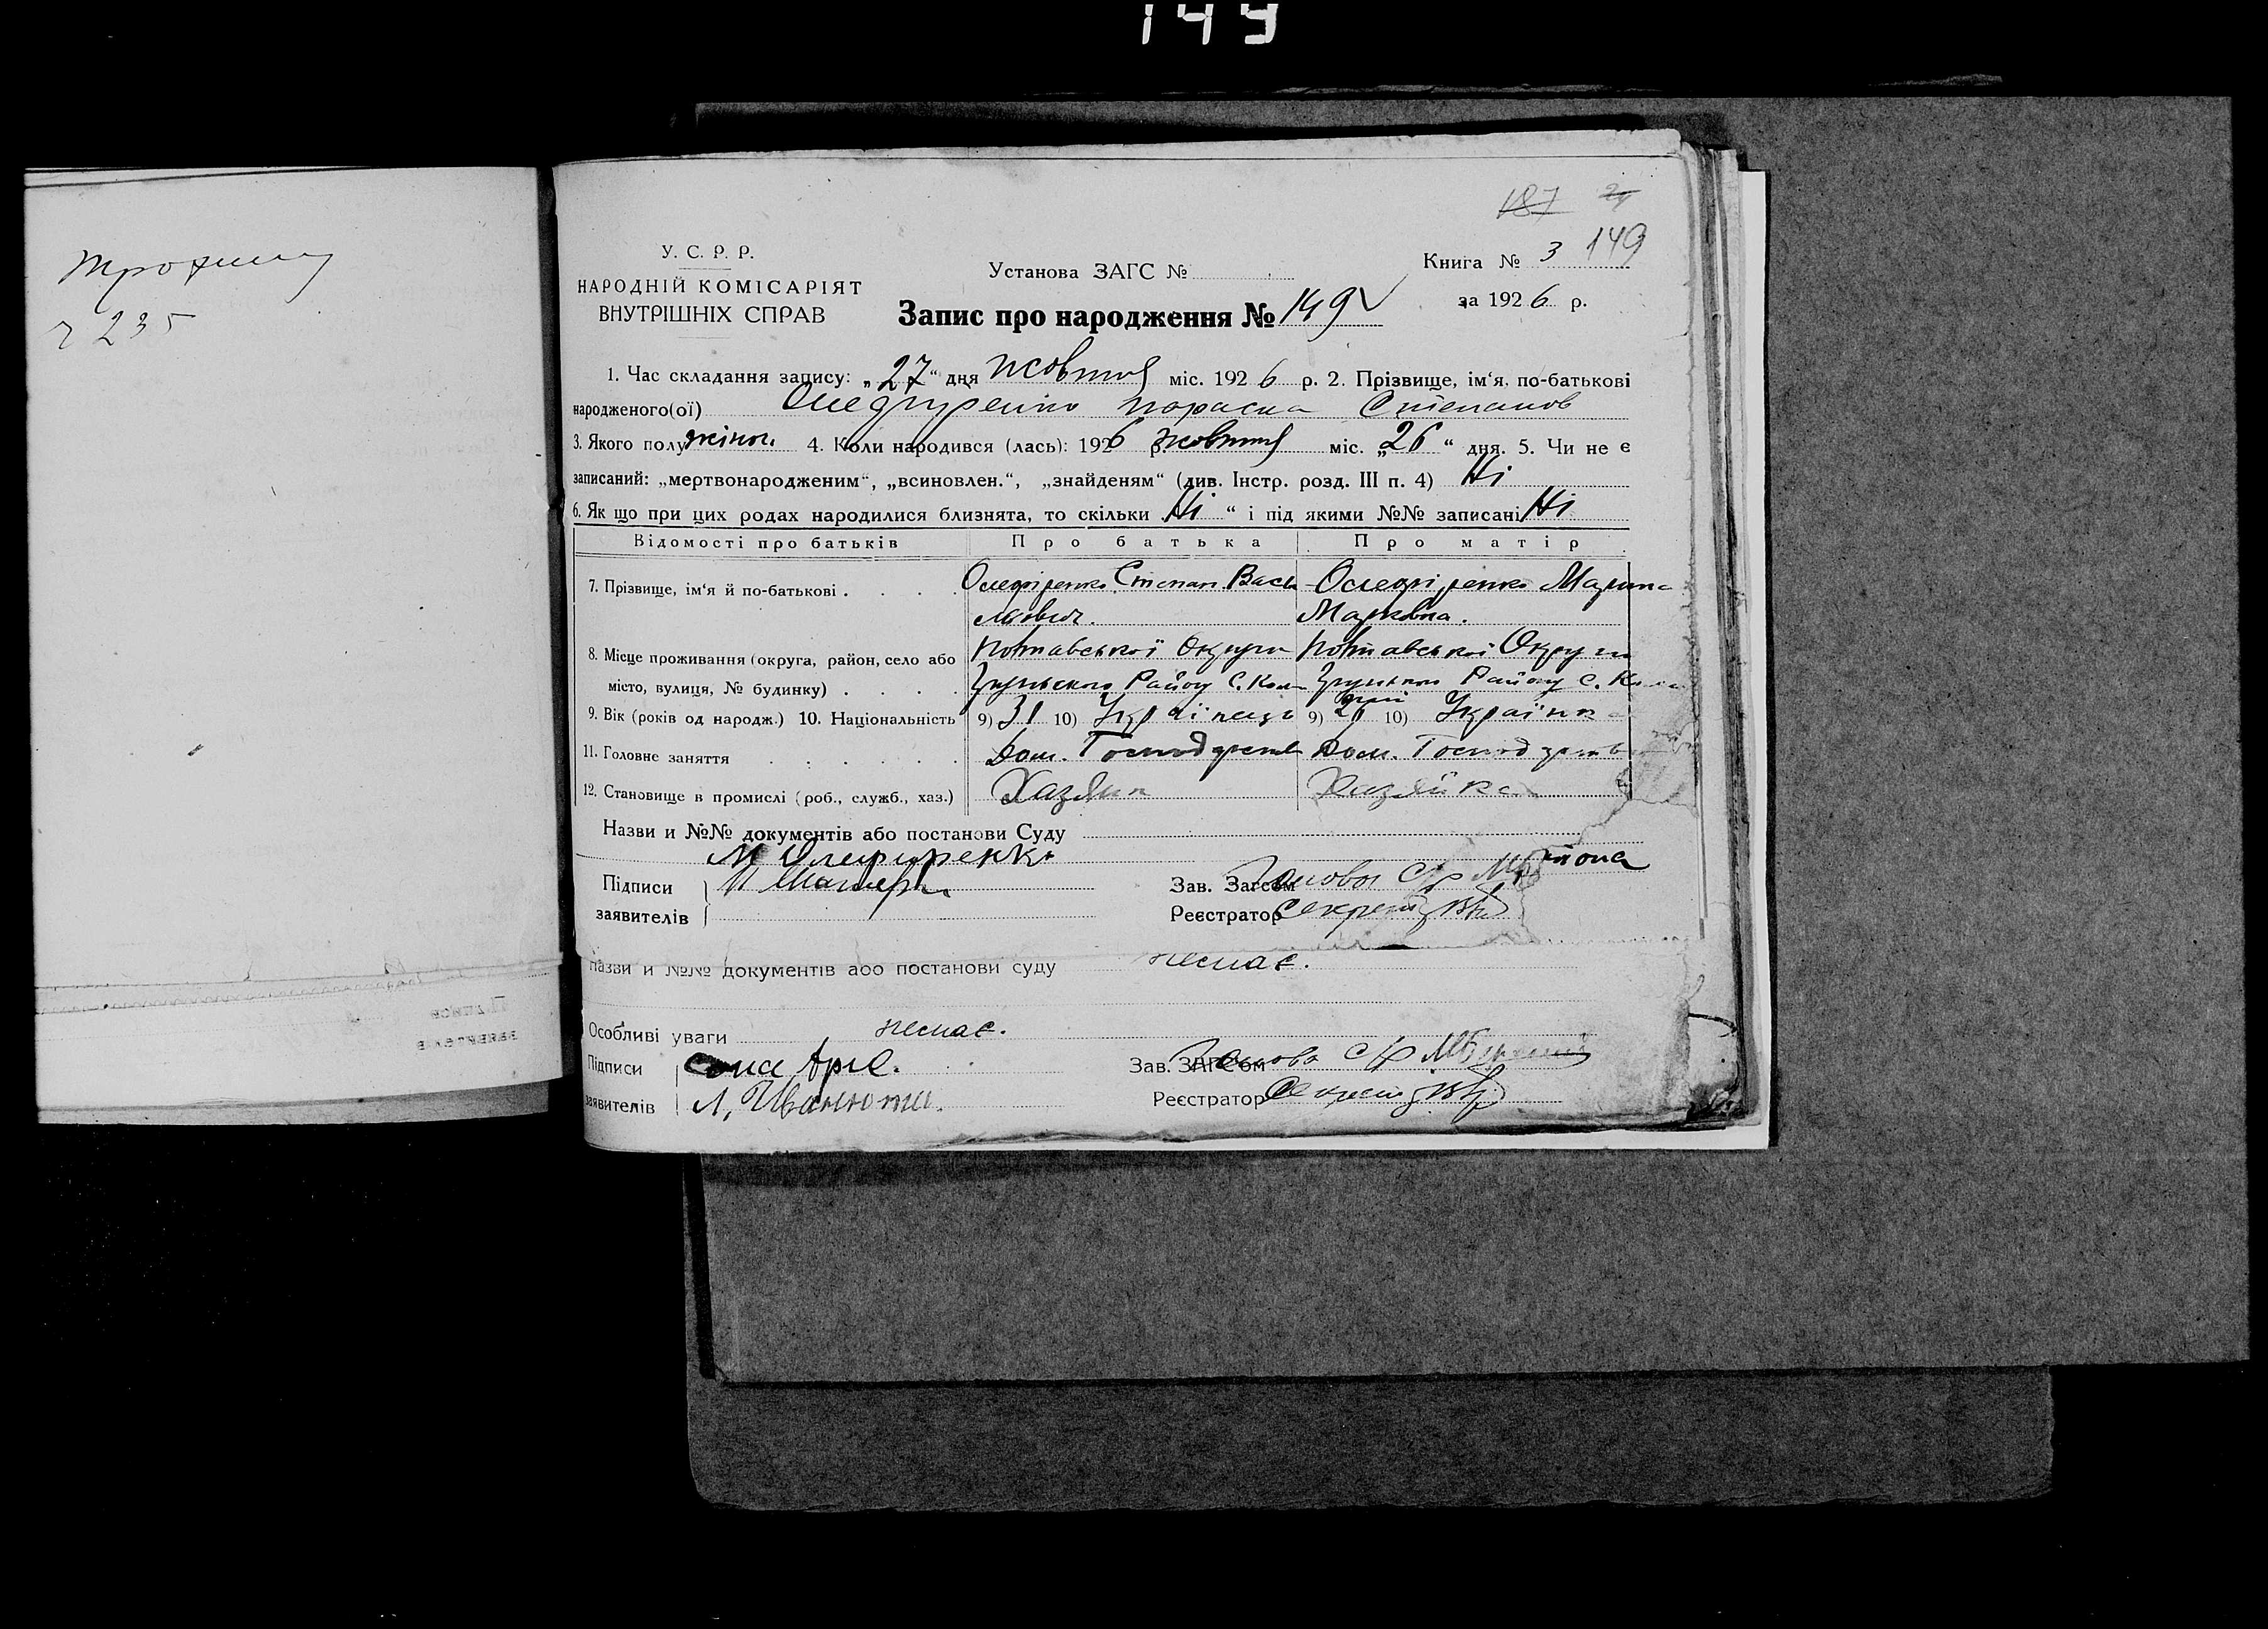 149
187
149
У. С. Р. Р.
НАРОДНІЙ КОМІСАРІЯТ
ВНУТРІШНІХ СПРАВ
Установа ЗАГС №
Книга № 3
за 1926 р.
Запис про народження № 149
1. Час складання запису: „27“ дня жовтня міс. 1926 р. 2. Прізвище, ім‘я, по-батькові
народженого(ої) Олефіренко Параска Степанов
3. Якого полу жіноч. 4. Коли народився (лась): 1926 р. жовтня міс. „26“ дня. 5. Чи не є
записаний: „мертвонародженим“, „всиновлен.“, „знайденям“ (див. Інстр. розд. III п. 4) Ні
6. Як що при цих родах народилися близнята, то скільки Ні “ і під якими №№ записані Ні
Відомості про батьків Про батька Про матір
7. Прізвище, ім‘я й по-батькові . Олефіренко Степан Васи Олефіренко Марина
льович. Марковна.
8. Місце проживання (округа, район, село або Полтавської Округи Полтавської Округи
місто, вулиця, № будинку) Району С. Району С.
9. Вік (років од народж.) 10. Національність 9) 31 10) Українець 9) 29 10) Українка
11. Головне заняття Дом. Господарств Дом. Господарств
12. Становище в промислі (роб., служб., хаз.) Хазяїн Хазяйка
Назви и №№ документів або постанови Суду
М Олефиренко
Підписи
заявителів
Зав. Загсом Голова С/р
Реєстратор Секрет
Назви и №№ документів або постанови суду немає.
Особливі уваги немає.
Підписи
заявителів Л, Иванюта.
Зав. ЗАГСом Голова С/р
Реєстратор Секрет
235